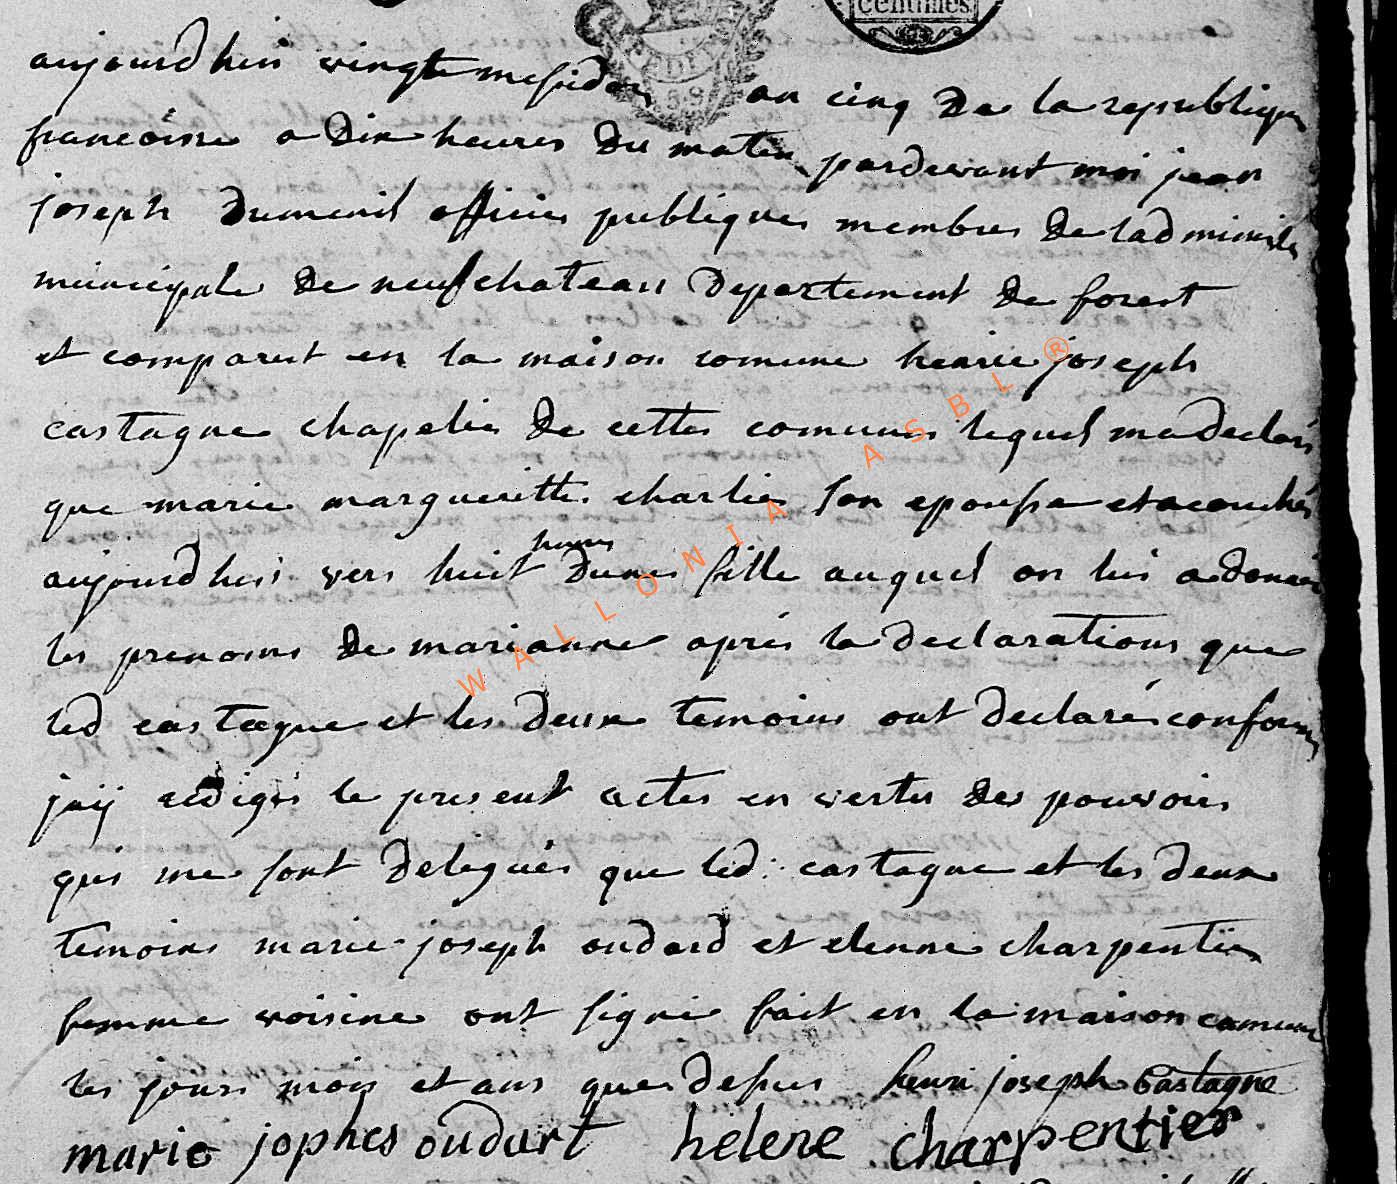 centimes
aujourdhuis vingte mesidor an cinq de la republique
francoisse a dix heures du matin pardevant moi jean
joseph dumenil officier publiques membres de ladministr
municipale de neufchateau departement de forest
et comparut en la maison comune henrie joseph
castagne chapelier de cettes comunes lequel ma declaré
que marie margueritte charlier son epousse et acouchés
heures
aujourdhui vers huit dunes fille auquel on lui a donnée
les prenoms de marianne aprés la declarations que
led castagne et les deux temoins ont declaré conforme
jaÿ redigés le present actes en vertu des pouvoirs
qui me sont delegués que led: castagne et les deux
temoins marie joseph oudard et elenne charpentier
femme voisine ont signé fait en la maison comune
les jours mois et ans que defus henri joseph Castagne
marie jophes oudart helene charpentier
WALLONIA ASBL ®